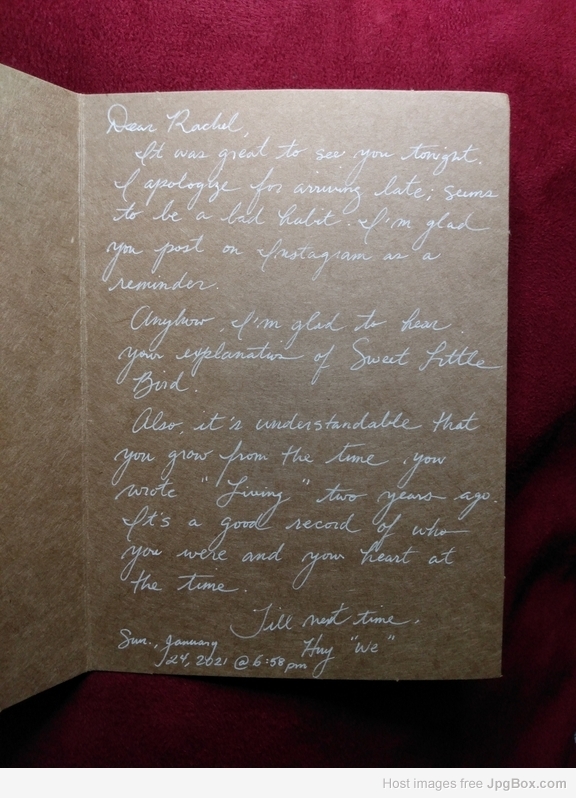 Dear Rachel,
It was great to see you tonight.
I apologize for arriving late; seems
to be a bad habit. I'm glad
you post on Instagram as a
reminder.
Anyhow, I'm glad to hear
your explanation of Sweet Little
Bird.
Also, it's understandable that
you grow from the time you
wrote "Living" two years ago.
It's a good record of who
you were and your heart at
the time.
Till next time,
Huy "We"
Sun., January
24, 2021 @ 6:58 pm
Host images free JpgBox.com